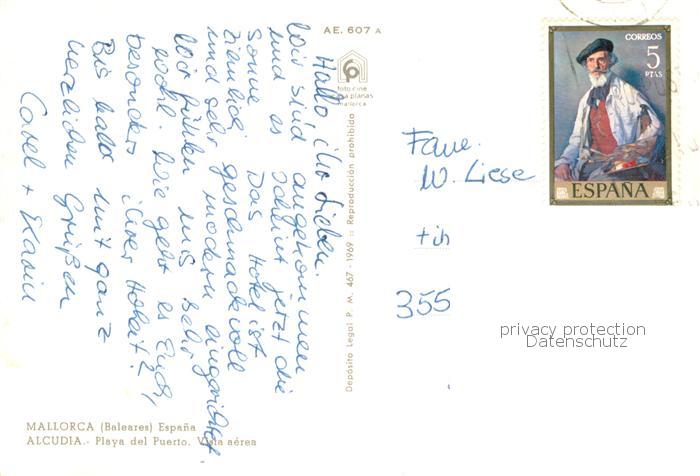 AE. 607 A
foto cine
mallorca
Depósito Legal P. M. 467 - 1969 :: Reproducción prohibida
Hallo ihr Lieben.
Wir sind angekommen
und es scheint jetzt die
Sonne. Das Hotel ist
ziemlich geschmackvoll
und sehr modern eingerichtet
Wir fühlen uns sehr
wohl. Wie geht es Euch,
besonders ihrer Hoheit?
Bis bald mit ganz
herzlichen Grüßen
Karin
MALLORCA (Baleares) España
ALCUDIA.- Playa del Puerto. Vista aérea
CORREOS
5
PTAS
ESPAÑA
W. Liese
355
privacy protection
Datenschutz